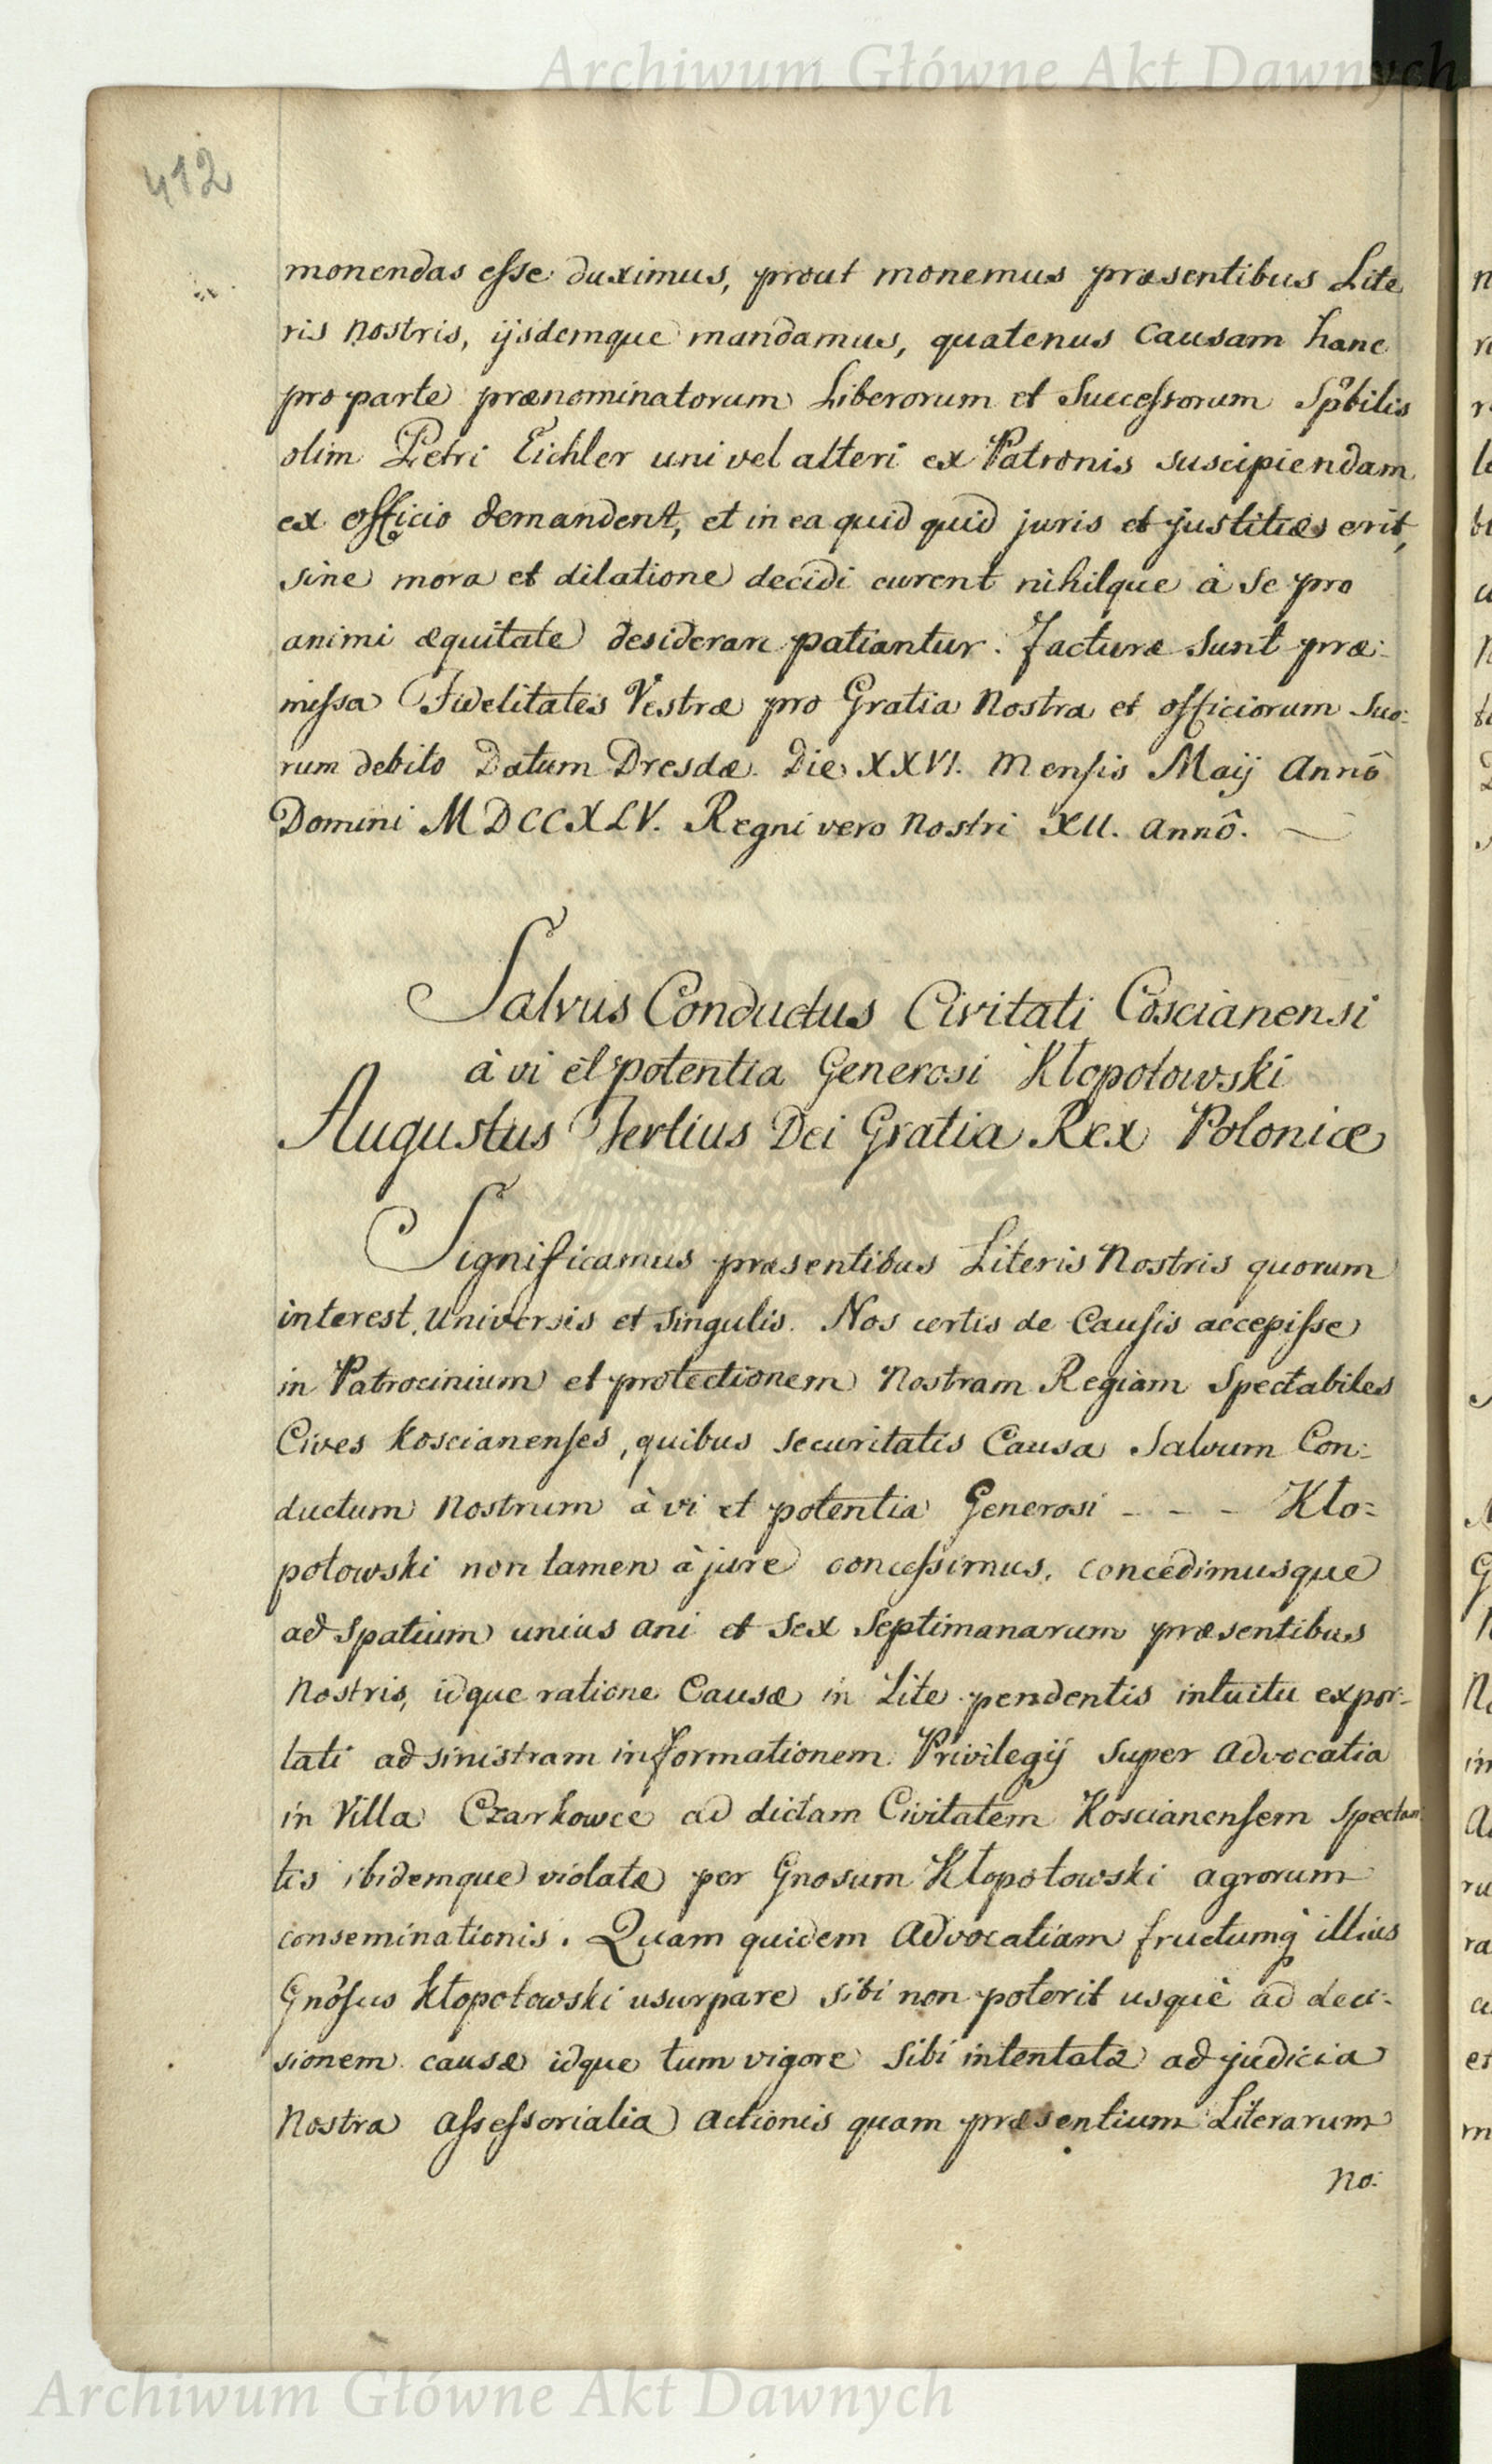 Archiwum Główne Akt Dawnych
412
monendas esse duximus, prout monemus præsentibus Lite
ris nostris, ijsdemque mandamus, quatenus Causam hanc
pro parte prænominatorum Liberorum et Successorum Spbilis
olim Petri Eichler uni vel alteri ex Patronis suscipiendam
ex officio demandent, et in ea quid quid juris et justitiæ erit,
sine mora et dilatione decidi curent nihilque à se pro
animi æquitate desiderari patiantur. Facturæ sunt præ:
missa Fidelitates Vestræ pro Gratia Nostra et officiorum Suo:
rum debito Datum Dresdæ. Die XXVI. Mensis Maij Annô
Domini MDCCXLV. Regni vero Nostri XII. Annô.
Salvus Conductus Civitati Coscianensi
à vi et potentia Generosi Kłopotowski
Augustus Tertius Dei Gratia Rex Poloniæ
Significamus præsentibus Literis Nostris quorum
interest, Universis et singulis. Nos certis de Causis accepisse
in Patrocinium et protectionem Nostram Regiam Spectabiles
Cives Koscianenses, quibus securitatis Causa Salvum Con:
ductum Nostrum à vi et potentia Generosi - - - Kło:
potowski non tamen à jure concessimus, concedimusque
ad spatium unius ani et sex Septimanarum præsentibus
Nostris, idque ratione Causæ in Lite pendentis intuitu expor:
tati ad sinistram informationem Privilegij Super Advocatia
in Villa Czarkowce ad dictam Civitatem Koscianensem Spectan
tis ibidemque violatæ per Gnosum Kłopotowski agrorum
conseminationis. Quam quidem Advocatiam fructumq illius
Gnosus Kłopotowski usurpare sibi non poterit usque ad deci:
sionem causæ idque tum vigore Sibi intentatæ ad judicia
Nostra Assessorialia Actionis quam præsentium Literarum
No:
Archiwum Główne Akt Dawnych